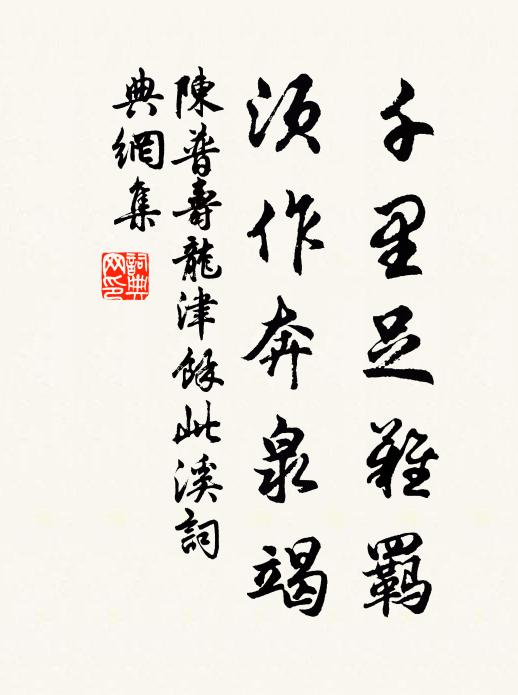 千里足難羈
須作奔泉竭
陳普壽龍津餘此溪詞
典網集
詞典网印